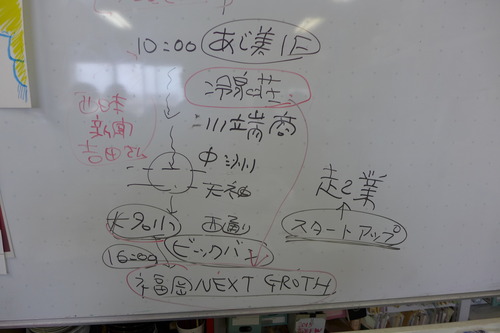 10:00 あじ美1F
冷泉荘
川端商
西日本
新聞
吉田さん
中洲
天神
大名小 西通り
走る業
スタートアップ
16:00 ビックバ
福岡NEXT GROTH